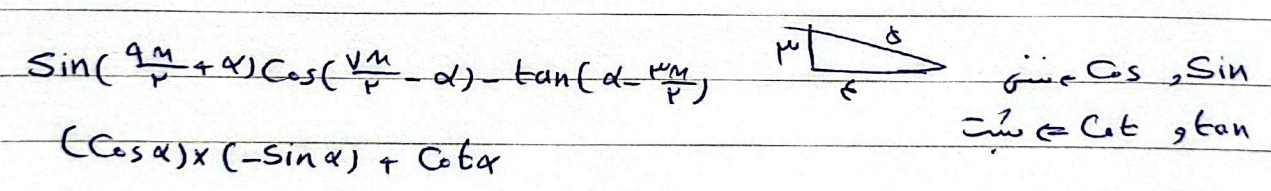 Sin(۹π/۲ + α) Cos(۷π/۲ - α) - tan(α - ۳π/۲)
۳ ۵ ۴
Sin و Cos منفی
tan و Cot ⇐ مثبت
(Cosα)×(-Sinα) + Cotα